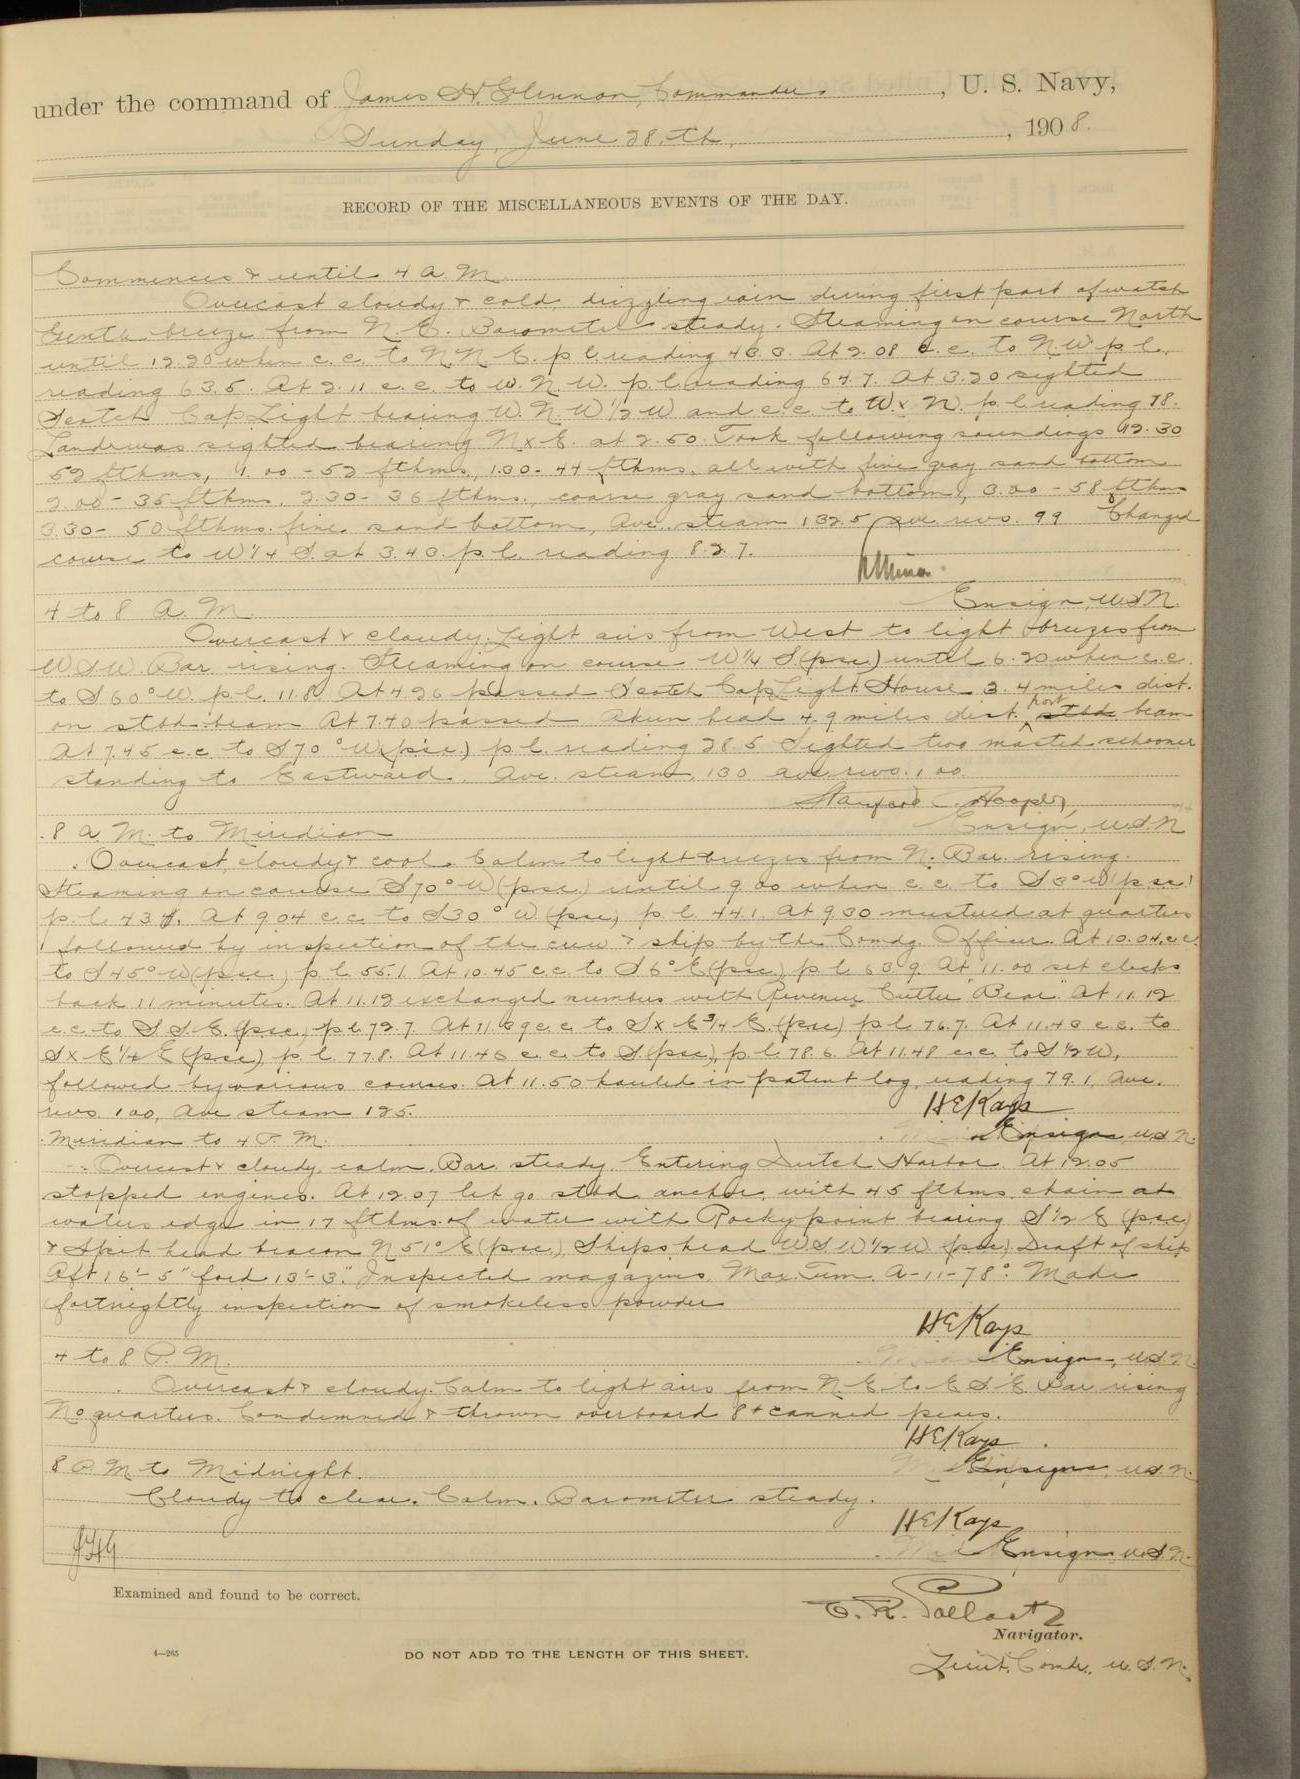 under the command of James H. Glennon, Commander, U. S. Navy,
Sunday, June 28.th, 1908.
RECORD OF THE MISCELLANEOUS EVENTS OF THE DAY.
Commences & until 4 A. M.
Overcast cloudy & cold, drizzling rain during first part of watch
Gentle breeze from N. E. Barometer steady. Steaming on course North
until 12.20 when c. c. to N. N. E. p l. reading 43.3. At 2.08 c. c. to N. W. p l.
reading 63.5. At 2.11 c. c. to W. N. W. p. l. reading 64.7. At 3.20 sighted
Scotch Cap Light bearing W. N. W ½ W and c. c. to W x N. p. l reading 78.
Land was sighted bearing N x E. at 2.50. Took following soundings 12.30
52 fthms, 1.00 - 52 fthms, 1.30 - 44 fthms, all with fine gray sand bottom
2.00 - 35 fthms. 2.30 - 36 fthms., coarse gray sand bottom, 3.00 - 58 fthms
3.30 - 50 fthms. fine sand bottom, Ave. steam 132.5 ave revs. 99 Changed
course to W ¼ S. at 3.43. p. l. reading 82.7.
Ensign, U.S.N.
4 to 8 A. M.
Overcast & cloudy. Light airs from West to light breezes from
W S W. Bar rising. Steaming on course W ¼ S (psc.) until 6.20 when c. c.
to S 60° W. p. l. 11.8 At 4.26 passed Scotch Cap Light House 3.4 miles dist.
on stbd. beam At 7.40 passed Akun head 4.9 miles dist. port stbd beam
At 7.45 c. c to S 70° W. (psc.) p l. reading 28.5 Sighted two masted schooner
standing to Eastward. Ave. steam. 130 ave revs. 100.
Stanford Hooper,
Ensign, U.S.N
8 A. M. to Meridian
Overcast, cloudy & cool. Calm to light breezes from N. Bar. rising.
Steaming on course S 70° W (psc.) until 9.00 when c. c. to S 3° W (psc.)
p. l. 43. At 9.04 c. c. to S 30° W. (psc.) p. l. 44.1. At 9.30 mustered at quarters
followed by inspection of the crew & ship by the Comdg. Officer. At 10.04. c c.
to S 45° W (psc.) p l. 55.1 At 10.45 c. c. to S 6° E (psc.) p l. 63.9. At 11.00 set clocks
back 11 minutes. At 11.12 exchanged number with Revenue Cutter "Bear". At 11.12
c. c. to S. S. E. (psc.) p l. 72.7. At 11.39 c. c. to S x E ¾ E. (psc.) p l. 76.7. At 11.43 c. c. to
S x E ¼ E (psc.) p l. 77.8. At 11.46 c. c. to S. (psc.), p. l. 78.6. At 11.48 c. c. to S ½ W,
followed by various courses. At 11.50 hauled in patent log, reading 79.1, Ave.
revs. 100, Ave steam 125.
H E Kays
Ensign, U.S.N.
Meridian to 4 P. M.
Overcast & cloudy, calm. Bar. steady. Entering Dutch Harbor. At 12.05
stopped engines. At 12.07 let go stbd. anchor, with 45 fthms. chain at
waters edge in 17 fthms. of water with Rocky point bearing S ½ E (psc.)
& Spit head beacon N 51° E (psc.), Ships head W S W ½ W. (psc.) Draft of ship
Aft 16'-5" for'd 13'-3". Inspected magazines. Max. Tem. A-11-78°. Made
fortnightly inspection of smokeless powder
H E Kays
Ensign, U.S.N.
4 to 8 P. M.
Overcast & cloudy. Calm to light airs from N. E. to E. S. E. Bar. rising
No quarters. Condemned & thrown overboard 8# canned pears.
H E Kays
Ensign, U.S.N.
8 P. M. to Midnight.
Cloudy to clear. Calm. Barometer steady.
H E Kays
Ensign U.S.N.
Examined and found to be correct.
E. R. Pollock
Navigator.
4—265
DO NOT ADD TO THE LENGTH OF THIS SHEET.
Lieut. Comdr. U.S.N.